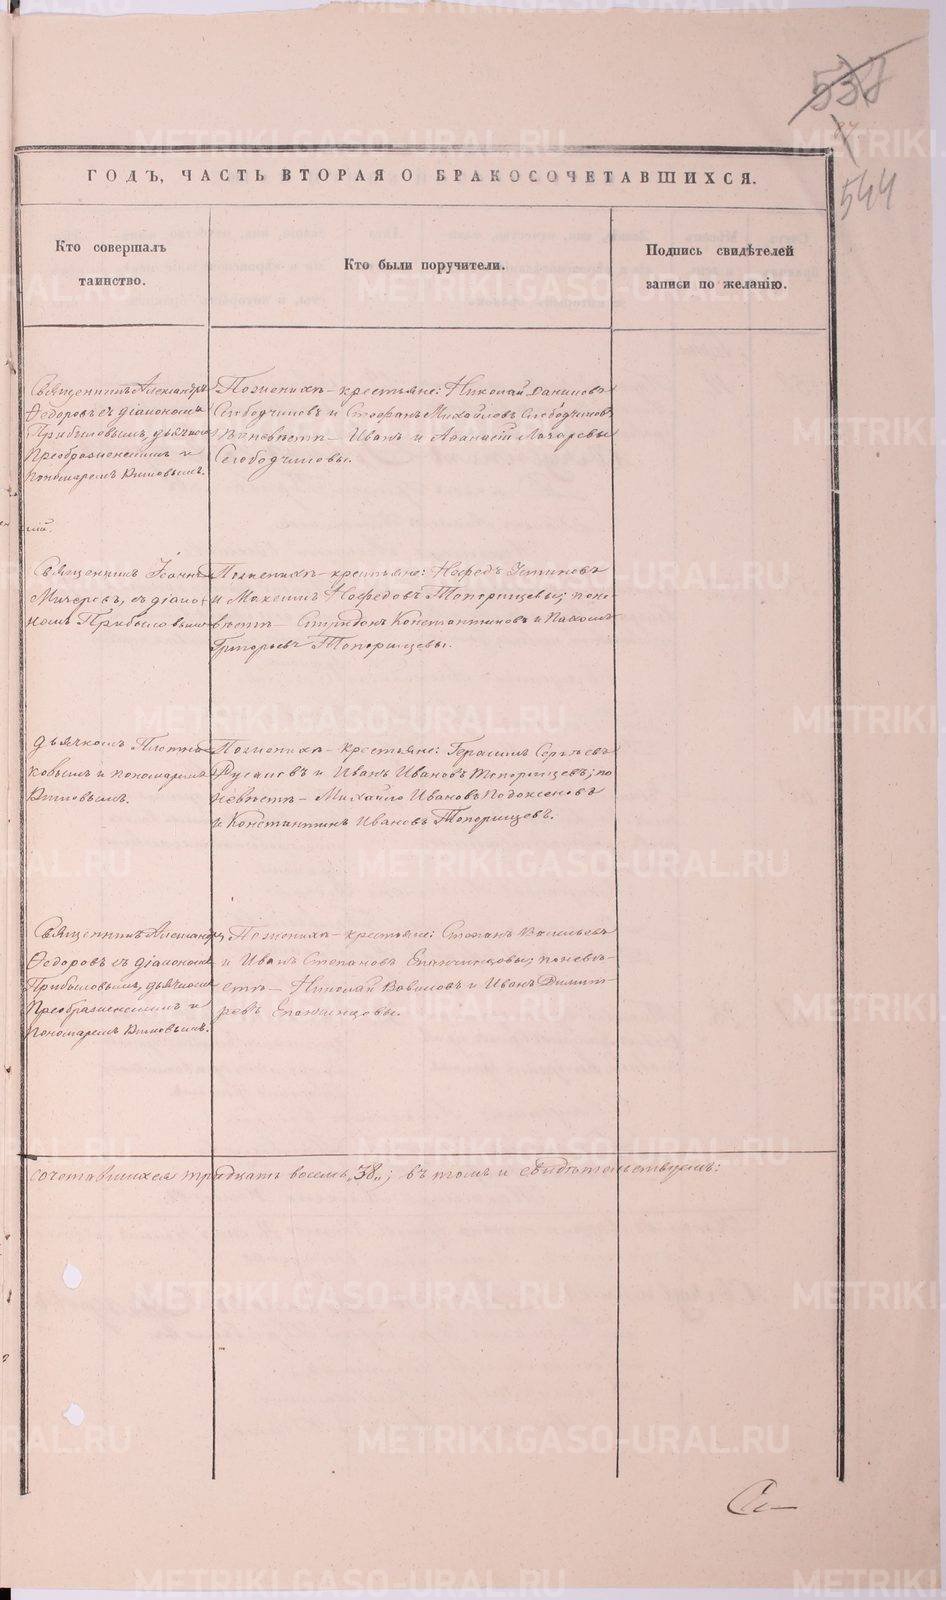 537
544
ГОДЪ, ЧАСТЬ ВТОРАЯ О БРАКОСОЧЕТАВШИХСЯ.
Кто совершалъ
таинство.
Кто были поручители.
Подпись свидѣтелей
записи по желанію.
Священникъ Александръ
Ѳедоровъ съ діакономъ
Прибыловымъ, дьячкомъ
Преображенскимъ и
пономаремъ
По женихѣ – крестьяне: Николай Даниловъ
Слободчиковъ и Стефанъ Михайловъ Слободчиковъ
По невѣстѣ – Иванъ и Аѳанасій Лазаревы
Слободчиковы.
Священникъ Іоаннъ
съ діако-
номъ Прибыловымъ
По женихѣ – крестьяне: Нефедъ Устиновъ
и Максимъ Нефедовъ Топорищевы; по не-
вѣстѣ – Спиридонъ Константиновъ и Пахомъ
Григорьевъ Топорищевы.
дьячкомъ Плотни-
ковымъ и пономаремъ
По женихѣ – крестьяне: Герасимъ Сергѣевъ
Русаковъ и Иванъ Ивановъ Топорищевъ; по
невѣстѣ – Михайло Ивановъ Подоксеновъ
и Константинъ Ивановъ Топорищевъ.
Священникъ Александръ
Ѳедоровъ съ діакономъ
Прибыловымъ, дьячкомъ
Преображенскимъ и
пономаремъ
По женихѣ – крестьяне: Степанъ Васильевъ
и Иванъ Степановъ Епанчинцовы; по невѣ-
стѣ – Николай Вавиловъ и Иванъ Димит-
ревъ Епанчинцовы.
сочетавшихся тридцать восемь „38„; въ томъ и свидѣтельствуемъ:
METRIKI.GASO-URAL.RU